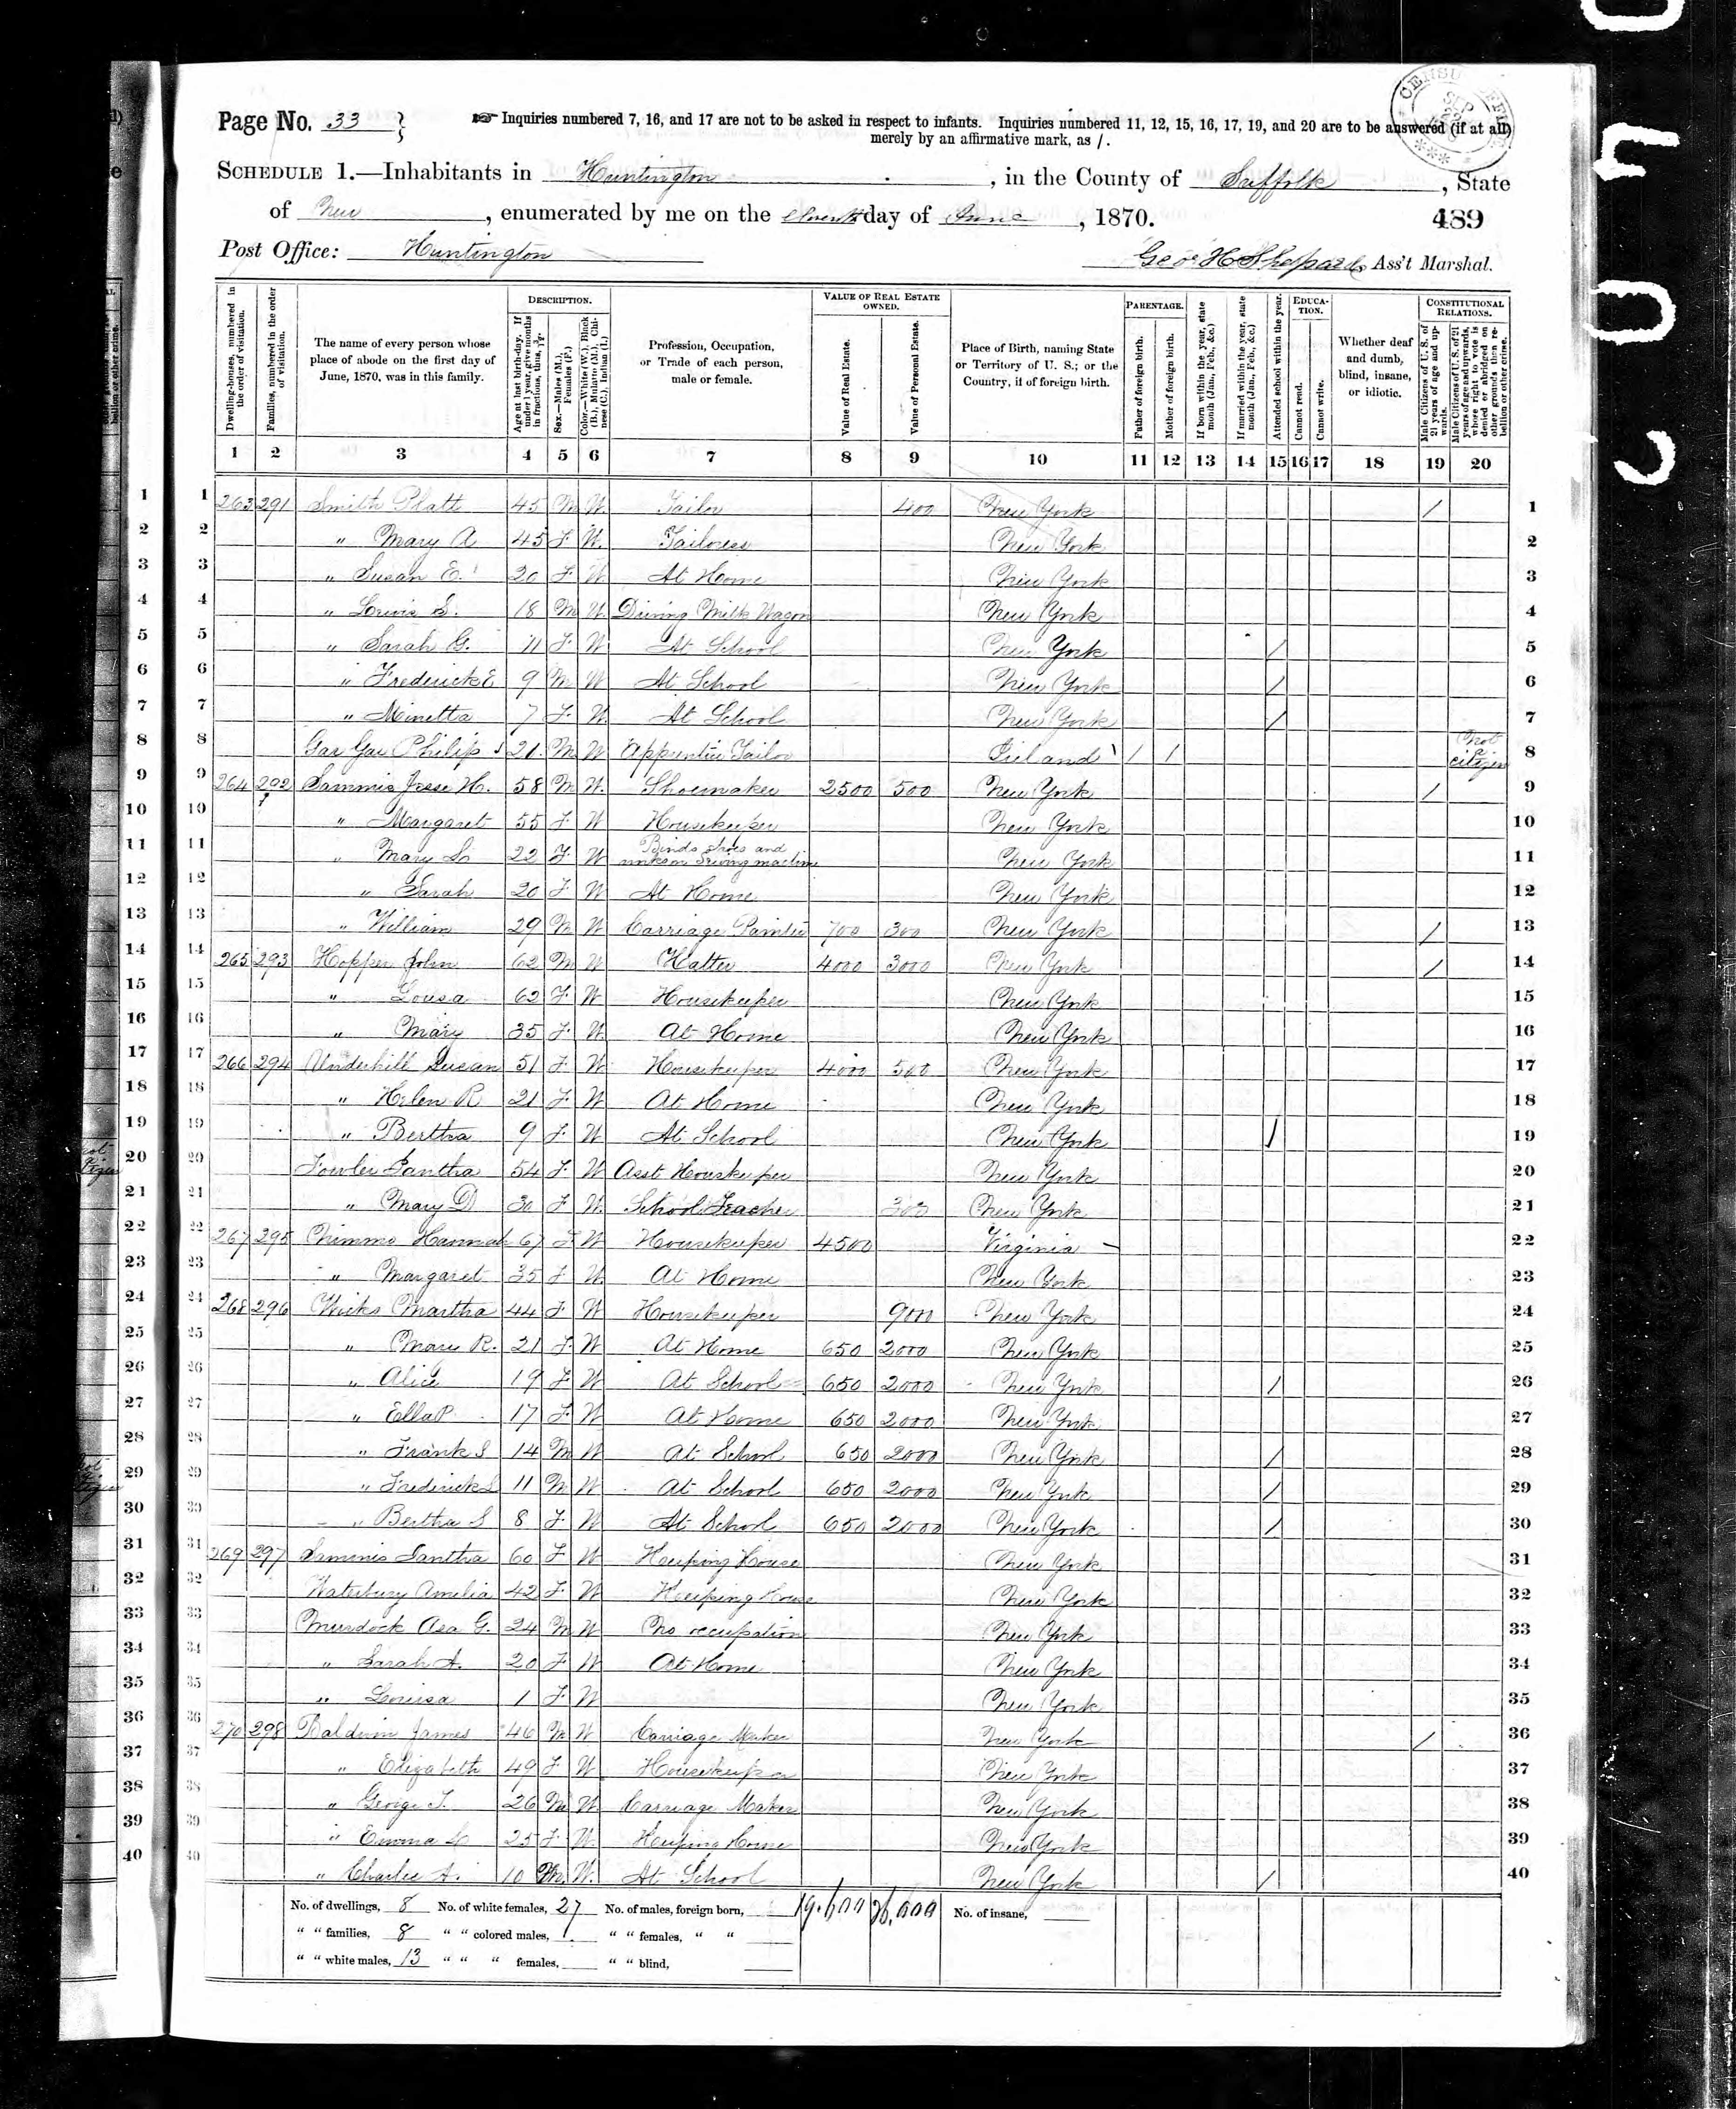 Page No. 33
Inquiries numbered 7, 16, and 17 are not to be asked in respect to infants. Inquiries numbered 11, 12, 15, 16, 17, 19, and 20 are to be answered (if at all)
merely by an affirmative mark, as /.
SCHEDULE 1.—Inhabitants in Huntington, in the County of Suffolk, State
of New, enumerated by me on the day of June, 1870.
489
Post Office: Huntington
Geo. H Shepard, Ass't Marshal.
Dwelling-houses, numbered in the order of visitation.
Families, numbered in the order of visitation.
The name of every person whose place of abode on the first day of June, 1870, was in this family.
DESCRIPTION.
Age at last birth-day. If under 1 year, give months in fractions, thus, 3/12.
Sex.—Males (M.), Females (F.)
Color.—White (W.), Black (B.), Mulatto (M.), Chinese (C.), Indian (I.)
Profession, Occupation, or Trade of each person, male or female.
VALUE OF REAL ESTATE OWNED.
Value of Real Estate.
Value of Personal Estate.
Place of Birth, naming State or Territory of U. S.; or the Country, if of foreign birth.
PARENTAGE.
Father of foreign birth.
Mother of foreign birth.
If born within the year, state month (Jan., Feb., &c.)
If married within the year, state month (Jan., Feb., &c.)
Attended school within the year.
EDUCATION.
Cannot read.
Cannot write.
Whether deaf and dumb, blind, insane, or idiotic.
CONSTITUTIONAL RELATIONS.
Male Citizens of U. S. of 21 years of age and upwards.
Male Citizens of U. S. of 21 years of age and upwards, whose right to vote is denied or abridged on other grounds than rebellion or other crime.
1 2 3 4 5 6 7 8 9 10 11 12 13 14 15 16 17 18 19 20
1 263 291 Smith Platt 45 M W. Tailor 400 New York / 1
2 " Mary A 45 F. W. Tailoress New York 2
3 " Susan E. 20 F. W At Home New York 3
4 " Lewis S. 18 M W. Driving Milk Wagon New York 4
5 " Sarah G. 11 F. W At School New York / 5
6 " Frederick E 9 M W At School New York / 6
7 " Minetta 7 F. W. At School New York / 7
8 Philip 21 M W Apprentice Tailor Ireland / / Not a citizen 8
9 264 292 Sammis Jesse H. 58 M W. Shoemaker 2500 500 New York / 9
10 " Margaret 55 F W Housekeeper New York 10
11 " Mary 22 F. W Binds Shoes and works on Sewing machine New York 11
12 " Sarah 20 F W At Home New York 12
13 " William 29 M W Carriage Painter 700 300 New York / 13
14 265 293 Hopper John 62 M W Hatter 4000 3000 New York / 14
15 " Lousa 62 F. W Housekeeper New York 15
16 " Mary 35 F. W At Home New York 16
17 266 294 Underhill Susan 51 F. W Housekeeper 4000 500 New York 17
18 " Helen R 21 F. W At Home New York 18
19 " Bertha 9 F. W At School New York / 19
20 Fowler Iantha 54 F. W Asst Housekeeper New York 20
21 " Mary D 30 F W. School Teacher 300 New York 21
22 267 295 Hannah 67 F W Housekeeper 4500 Virginia 22
23 " Margaret 35 F W At Home New York 23
24 268 296 Wicks Martha 44 F. W Housekeeper 9000 New York 24
25 " Mary R. 21 F. W At Home 650 2000 New York 25
26 " Alice 19 F W At School 650 2000 New York / 26
27 " Ella P. 17 F. W At Home 650 2000 New York 27
28 " Frank S 14 M W At School 650 2000 New York / 28
29 " Frederick S 11 M W At School 650 2000 New York / 29
30 " Bertha S 8 F. W At School 650 2000 New York / 30
31 269 297 Sammis Iantha 60 F W Keeping House New York 31
32 Waterbury Amelia 42 F. W Keeping House New York 32
33 Murdock Asa G. 24 M W No occupation New York 33
34 " Sarah A. 20 F W At Home New York 34
35 " Louisa 1 F. W New York 35
36 270 298 Baldwin James 46 M W Carriage Maker New York / 36
37 " Elizabeth 49 F W. Housekeeper New York 37
38 " George T. 26 M W. Carriage Maker New York 38
39 " Emma 25 F W. Keeping House New York 39
40 " Charlie A. 10 M W. At School New York / 40
No. of dwellings, 8 No. of white females, 27 No. of males, foreign born, 19,600 26,000 No. of insane,
" " families, 8 " " colored males, " " females, " "
" " white males, 13 " " " females, " " blind,